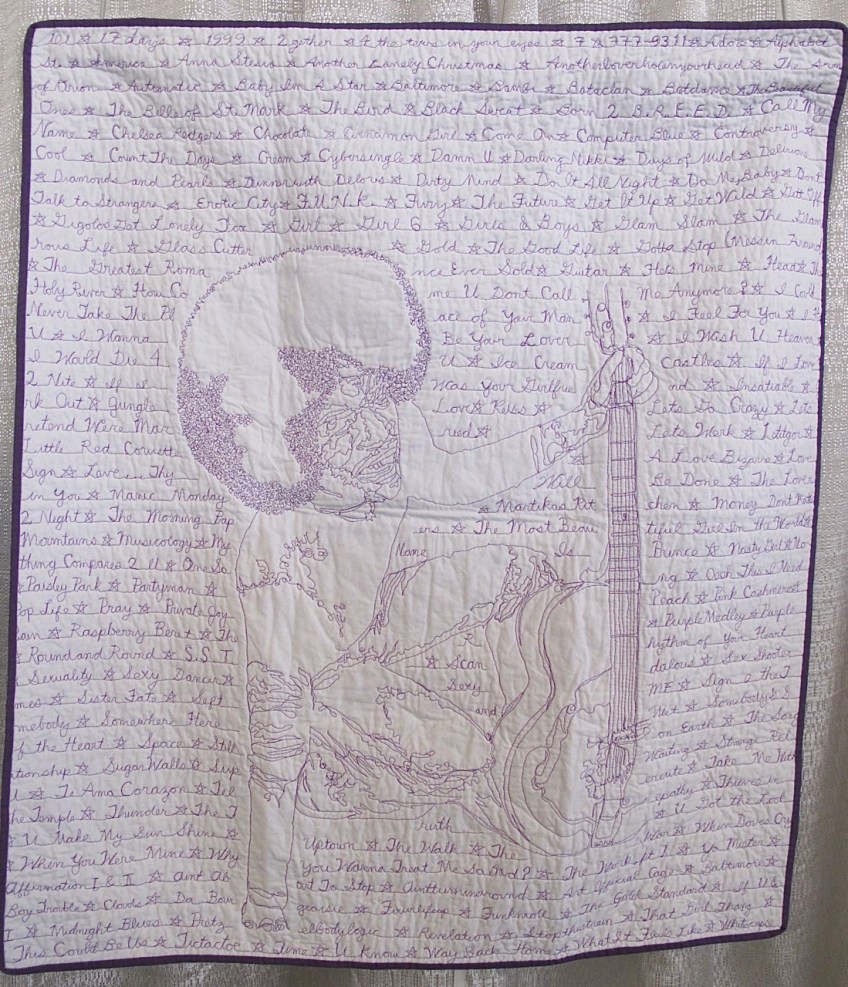 101 ☆ 17 Days ☆ 1999 ☆ 2gether ☆ 4 the tears in your eyes ☆ 7 ☆ 777-9311 ☆ Adore ☆ Alphabet
St. ☆ America ☆ Anna Stesia ☆ Another Lonely Christmas ☆ Anotherloverholenyourhead ☆ The Arms
of Orion ☆ Automatic ☆ Baby Im A Star ☆ Baltimore ☆ Bambi ☆ Bataclan ☆ Batdance ☆ The Beautiful
Ones ☆ The Bells of St. Mark ☆ The Bird ☆ Black Sweat ☆ Born 2 B.R.E.E.D. ☆ Call My
Name ☆ Chelsea Rodgers ☆ Chocolate ☆ Cinnamon Girl ☆ Come On ☆ Computer Blue ☆ Controversy ☆
Cool ☆ Count The Days ☆ Cream ☆ Cybersingle ☆ Damn U ☆ Darling Nikki ☆ Days of Wild ☆ Delirious
☆ Diamonds and Pearls ☆ Dinner with Delores ☆ Dirty Mind ☆ Do It All Night ☆ Do Me, Baby ☆ Dont
Talk to Strangers ☆ Erotic City ☆ F.U.N.K. ☆ Fury ☆ The Future ☆ Get It Up ☆ Get Wild ☆ Gett Off
☆ Gigolos Get Lonely Too ☆ Girl ☆ Girl 6 ☆ Girls & Boys ☆ Glam Slam ☆ The Glamo
rous Life ☆ Glass Cutter ☆ Gold ☆ The Good Life ☆ Gotta Stop (Messin Around
☆ The Greatest Roma nce Ever Sold ☆ Guitar ☆ Hots Mine ☆ Head ☆ Th
Holy River ☆ How Co me U Dont Call Me Anymore? ☆ I Coul
Never Take The Pl ace of Your Man ☆ I Feel For You ☆ I
U ☆ I Wanna Be Your Lover ☆ I Wish U Heaven
I Would Die 4 U ☆ Ice Cream Castles ☆ If I Love
2 Nite ☆ If I Was Your Girlfrie nd ☆ Insatiable ☆
rk Out ☆ Jungle Love ☆ Kiss ☆ Lets Go Crazy ☆ Lets
retend Were Mar ried ☆ Lets Work ☆ Letitgo ☆
Little Red Corvette ☆ A Love Bizarre ☆ Love
Sign ☆ Love... Thy Will Be Done ☆ The Love
in You ☆ Manic Monday ☆ Martikas Kit chen ☆ Money Dont Mat
2 Night ☆ The Morning Pap ers ☆ The Most Beau tiful Girl In the World ☆
Mountains ☆ Musicology ☆ My Name Is Prince ☆ Nasty Girl ☆ No
thing Compares 2 U ☆ One So ng ☆ Ooh This I Need
☆ Paisley Park ☆ Partyman ☆ Peach ☆ Pink Cashmere ☆
Pop Life ☆ Pray ☆ Private Joy ☆ Purple Medley ☆ Purple
ain ☆ Raspberry Beret ☆ The R hythm of Your Heart
☆ Round and Round ☆ S.S.T. ☆ Scan dalous ☆ Sex Shooter
☆ Sexuality ☆ Sexy Dancer ☆ Sexy MF ☆ Sign o the T
mes ☆ Sister Fate ☆ Self and
mebody ☆ Somewhere Here on Earth ☆ The Song
f the Heart ☆ Space ☆ Still Waiting ☆ Strange Rel
tionship ☆ Sugar Walls ☆ Sup ercute ☆ Take Me With
U ☆ Te Amo Corazon ☆ Tel epathy ☆ Thieves in
he Temple ☆ Thunder ☆ The T ruth ☆ U Got the Look
☆ U Make My Sun Shine ☆ Uptown ☆ The Walk ☆ The War ☆ When Doves Cry
☆ When You Were Mine ☆ Why You Wanna Treat Me So Bad? ☆ The Work pt 1 ☆ Yo Mister ☆
Affirmation I & II ☆ aint ab out To Stop ☆ Aintturninaround ☆ Art Official Cage ☆ Baltimore ☆
Boy Trouble ☆ Clouds ☆ Da Bour geoisie ☆ Fixurlifeup ☆ Funknroll ☆ The Gold Standard ☆ If I
I ☆ Midnight Blues ☆ Pretz elbodylogic ☆ Revelation ☆ Stopthistrain ☆ That Girl Thang ☆
This Could Be Us ☆ Tictactoe ☆ Time ☆ U Know ☆ Way Back Home ☆ What It Feels Like ☆ Whitecaps